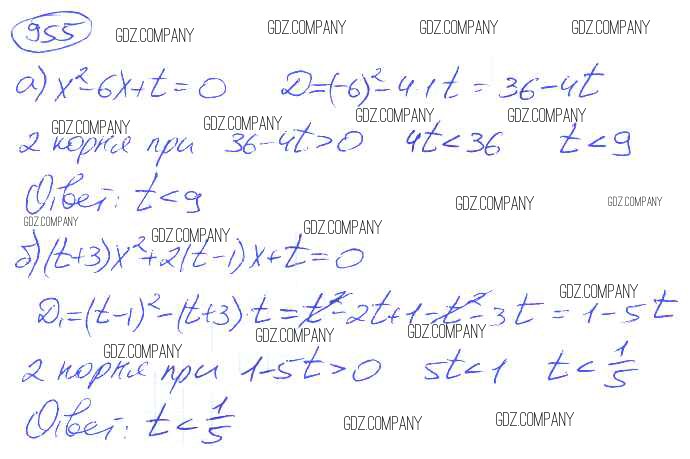 955 GDZ.COMPANY GDZ.COMPANY GDZ.COMPANY GDZ.COMPANY
а) x²-6x+t=0 D=(-6)²-4·1·t=36-4t
GDZ.COMPANY GDZ.COMPANY GDZ.COMPANY GDZ.COMPANY
2 корня при 36-4t>0 4t<36 t<9
Ответ: t<9
GDZ.COMPANY GDZ.COMPANY
GDZ.COMPANY GDZ.COMPANY GDZ.COMPANY
б) (t+3)x²+2(t-1)x+t=0
GDZ.COMPANY
D₁=(t-1)²-(t+3)·t=t²-2t+1-t²-3t=1-5t
GDZ.COMPANY GDZ.COMPANY GDZ.COMPANY
2 корня при 1-5t>0 5t<1 t<1/5
Ответ: t<1/5
GDZ.COMPANY GDZ.COMPANY